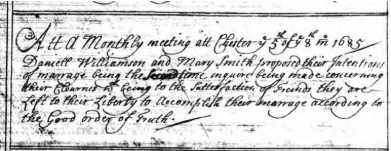 Att A Monthly meeting att Chester ye 5th of ye 8th m 1685
Daniell Williamson and Mary Smith proposed their Intentions
of marrage being the second time inquire being made concerning
their Clearnes & being to the Sattesfaction of Freinds they are
Left to their Liberty to Accomplish their marrage according to
the Good order of Truth.